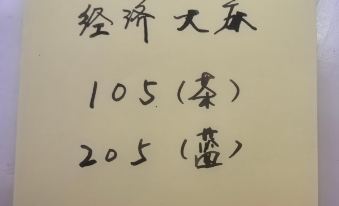 经济大床
105(茶)
205(蓝)